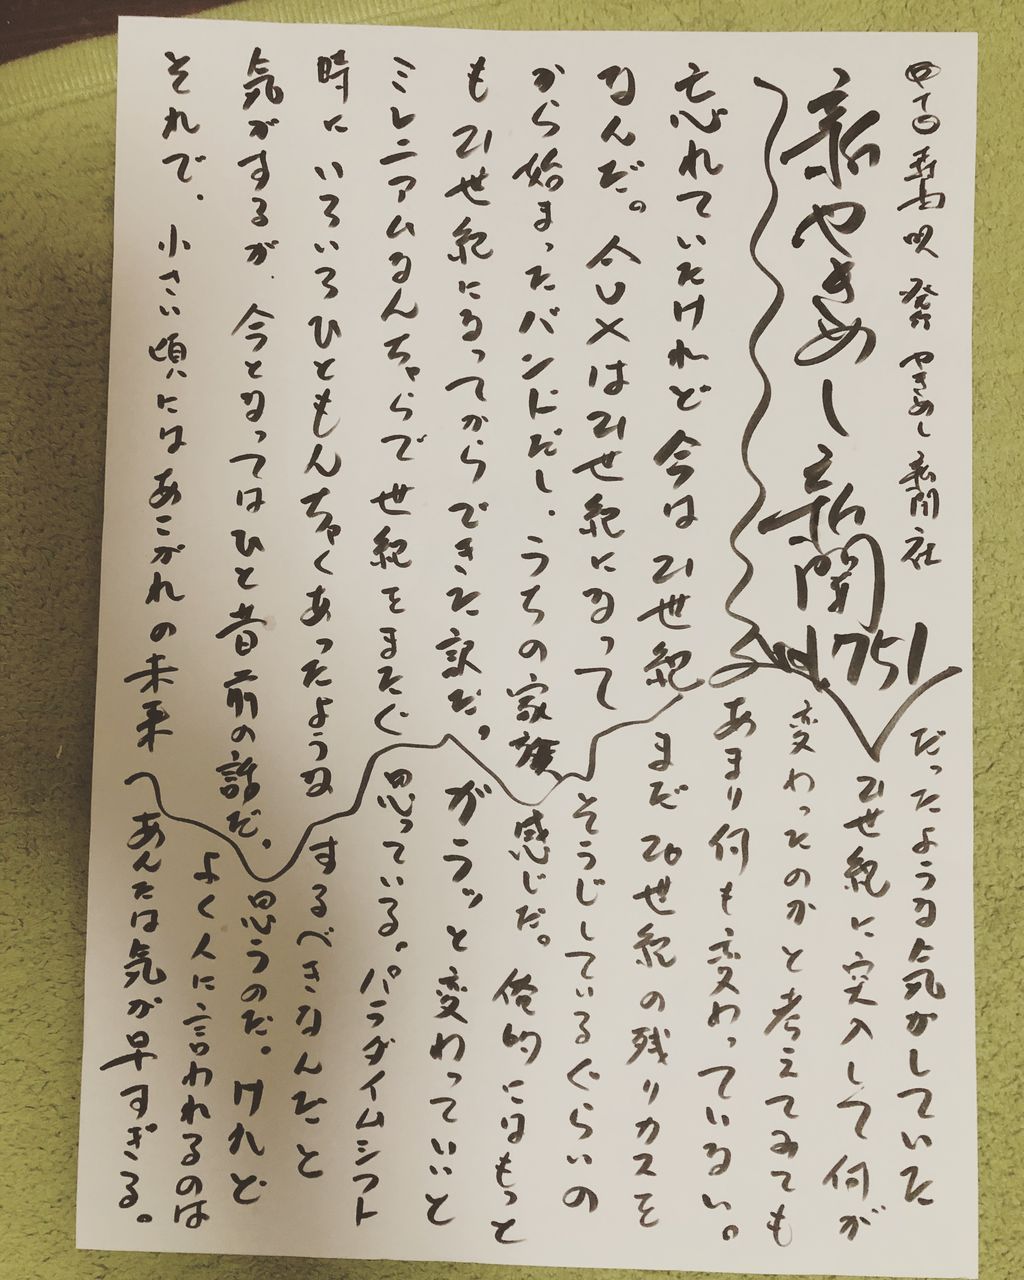 発行 やきめし新聞社
新やきめし新聞
1751
忘れていたけれど今は21世紀
なんだ。AUXは21世紀になって
から始まったバンドだし、うちの家族
も21世紀になってからできた訳だ。
ミレニアムなんちゃらで世紀をまたぐ
時にいろいろひともんちゃくあったような
気がするが、今となってはひと昔前の話だ。
それで、小さい頃にはあこがれの未来
だったような気がしていた
21世紀に突入して何が
変わったのかと考えてみても
あまり何も変わっていない。
まだ20世紀の残りカスを
そうじしているぐらいの
感じだ。俺的にはもっと
がラッと変わっていいと
思っている。パラダイムシフト
するべきなんだと
思うのだ。けれど
よく人に言われるのは
あんたは気が早すぎる。